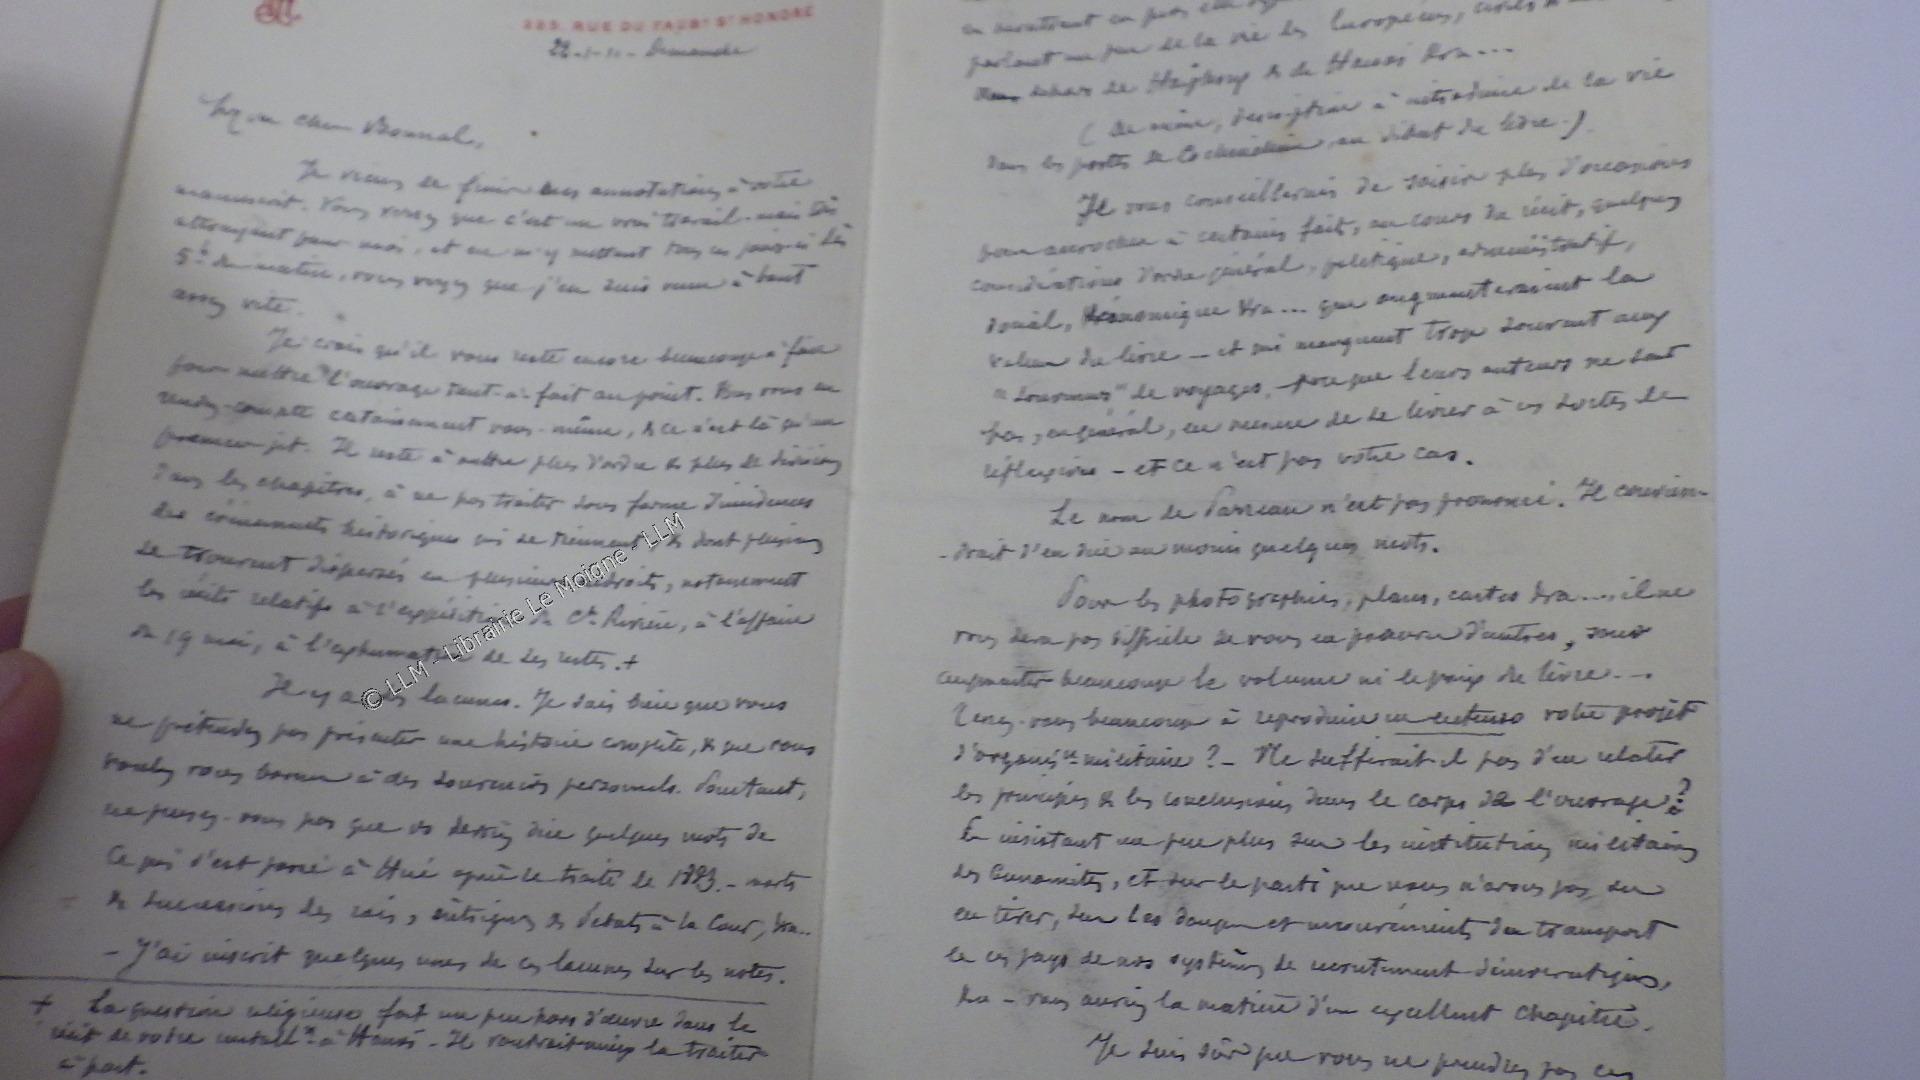 223, RUE DU FAUBG ST HONORÉ
Dimanche
Mon cher Bonnal,
Je viens de finir mes annotations à votre
manuscrit. Vous verrez que c'est un vrai travail - mais très
attrayant pour moi, et en m'y mettant tous ces jours-ci dès
5h du matin, vous voyez que j'en suis venu à bout
assez vite.
Je crois qu'il vous reste encore beaucoup à faire
pour mettre l'ouvrage tout-à-fait au point. Vous vous en
rendez-compte certainement vous-même, & ce n'est là qu'un
premier jet. Il reste à mettre plus d'ordre & plus de divisions
dans les chapitres, à ne pas traiter sous forme d'incidences
des événements historiques qui se tiennent & dont plusieurs
se trouvent dispersés en plusieurs endroits, notamment
les récits relatifs à l'expédition du Ct Rivière, à l'affaire
du 19 mai, à l'exhumation de ses restes. +
Il y a des lacunes. Je sais bien que vous
ne prétendez pas présenter une histoire complète, & que vous
voulez vous borner à des souvenirs personnels. Pourtant,
ne pensez-vous pas que dire quelques mots de
ce qui s'est passé à Hué après le traité de 1883. - morts
& successions des rois, intrigues & débats à la Cour, &ra..
- J'ai inscrit quelques unes de ces lacunes sur les notes.
+ La question religieuse fait un peu hors d'œuvre dans le
récit de votre installon à Hanoï - Il voudrait mieux la traiter
à part.
en montrant un peu
parlant un peu de la vie des Européens, civils &
dehors de Haïphong & de Hanoï &ra...
(De même, description à introduire de la vie
dans les postes de Cochinchine, au début du livre.)
Je vous conseillerais de saisir plus d'occasions
pour accrocher à certains faits, au cours du récit, quelques
considérations d'ordre général, politique, administratif,
social, économique &ra... qui augmenteraient la
valeur du livre - et qui manquent trop souvent aux
"souvenirs" de voyages, - parce que leurs auteurs ne sont
pas, en général, en mesure de se livrer à ces sortes de
réflexions - et ce n'est pas votre cas.
Le nom de Parreau n'est pas prononcé. Il convien-
-drait d'en dire au moins quelques mots.
Pour les photographies, plans, cartes &ra..., il ne
vous sera pas difficile de vous en procurer d'autres, sans
augmenter beaucoup le volume ni le prix du livre...
Tenez-vous beaucoup à reproduire in extenso votre projet
d'organison militaire? - Ne suffirait-il pas d'en relater
les principes & les conclusions dans le corps de l'ouvrage?
En insistant un peu plus sur les institutions militaires
des Annamites, et sur le parti que nous n'avons pas su
en tirer, sur les dangers et inconvénients du transport
en ces pays de nos systèmes de recrutement démocratiques,
&ra - vous auriez la matière d'un excellent chapitre.
Je suis sûr que vous ne prendrez pas ces
© LLM - Librairie Le Moigne - LLM